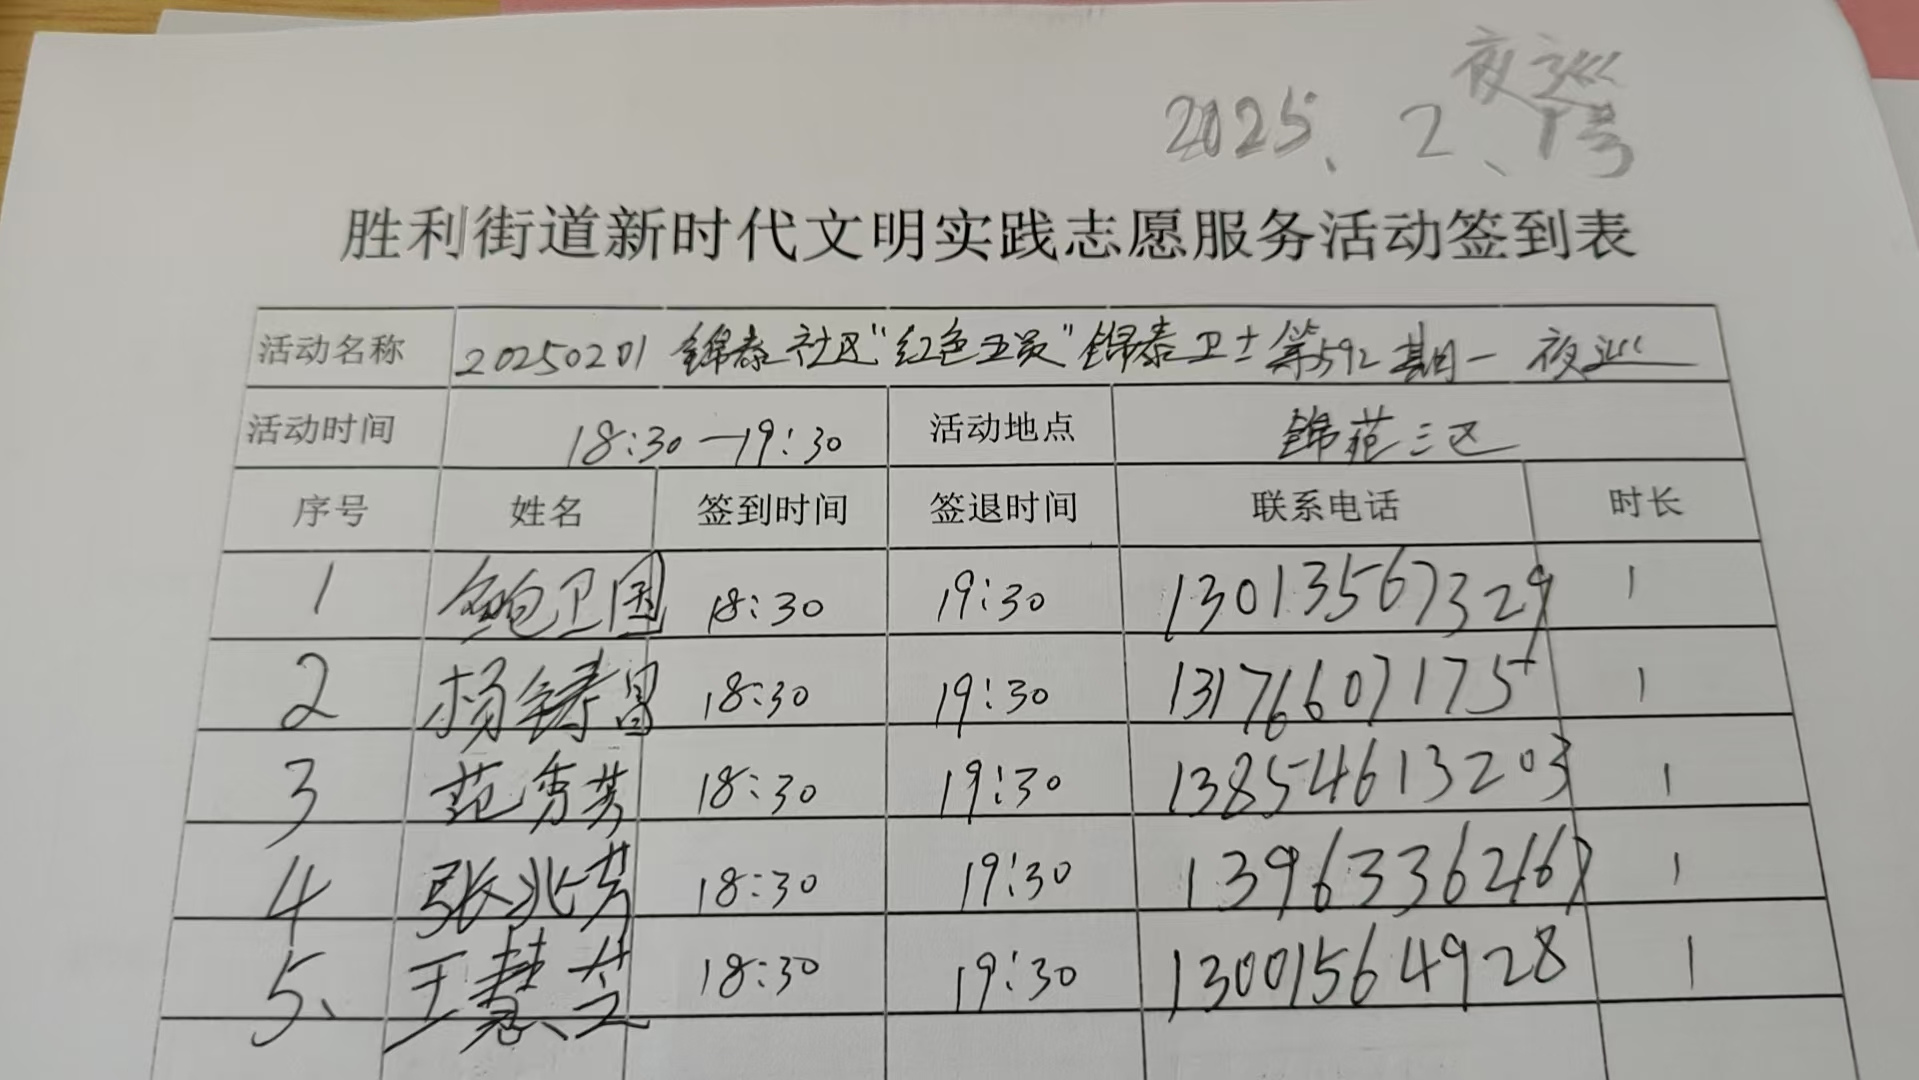 夜巡
2025、2、1号
胜利街道新时代文明实践志愿服务活动签到表
活动名称 20250201 锦泰社区“红色五员”锦泰卫士第592期一夜巡
活动时间 18:30—19:30 活动地点 锦苑三区
序号 姓名 签到时间 签退时间 联系电话 时长
1 鲍卫国 18:30 19:30 13013567329 1
2 杨铸昌 18:30 19:30 13176607175 1
3 范秀芳 18:30 19:30 13854613203 1
4 张兆芳 18:30 19:30 13963362467 1
5、王慧芝 18:30 19:30 13001564928 1